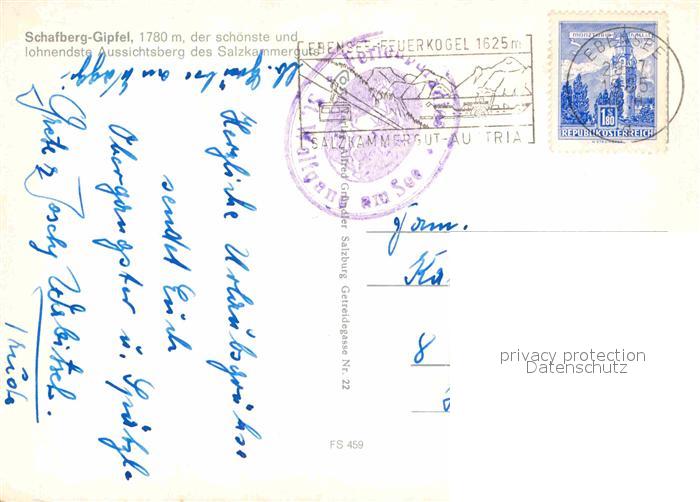 Schafberg-Gipfel, 1780 m, der schönste und
lohnendste Aussichtsberg des Salzkammerguts
EBENSEE-FEUERKOGEL 1625m
SALZKAMMERGUT-AU TRIA
EBENSEE
1.80
REPUBLIK ÖSTERREICH
am See
Herzliche Urlaubsgrüsse
sendet Euch
Obergangster u. Spätzle
Alfred Gründler Salzburg Getreidegasse Nr. 22
Fam.
Ka
8
privacy protection
Datenschutz
FS 459